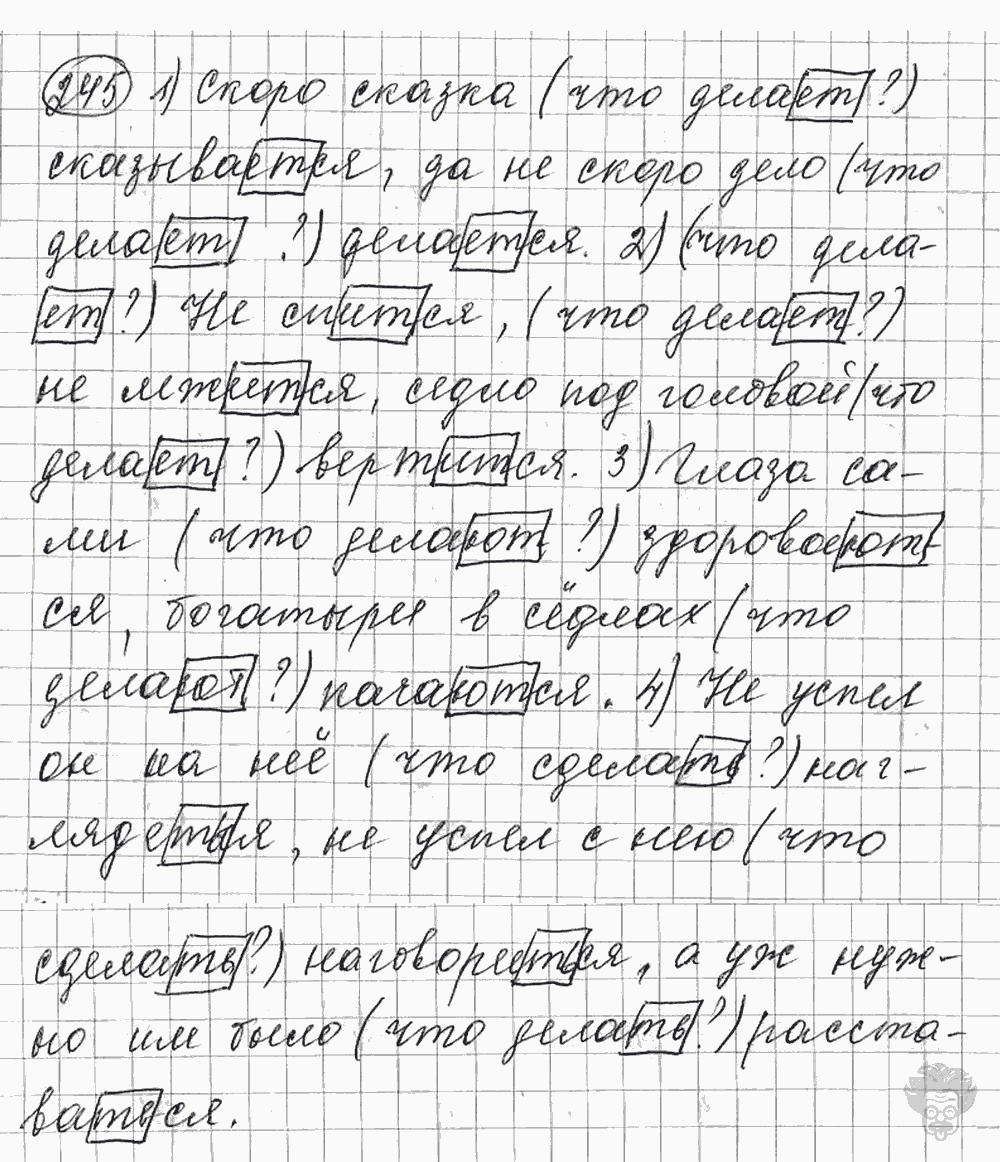 245 1) Скоро сказка (что делает?)
сказывается, да не скоро дело (что
делает ?) делается. 2) (что дела-
ет?) Не спится, (что делает?)
не лежится, седло под головой (что
делает ?) вертится. 3) Глаза са-
ми (что делают ?) здороваются-
ся, богатыри в сёдлах (что
делают ?) качаются. 4) Не успел
он на неё (что сделать?) наг-
лядеться, не успел с нею (что
сделать?) наговориться, а уж нуж-
но им было (что делать?) расста-
ваться.